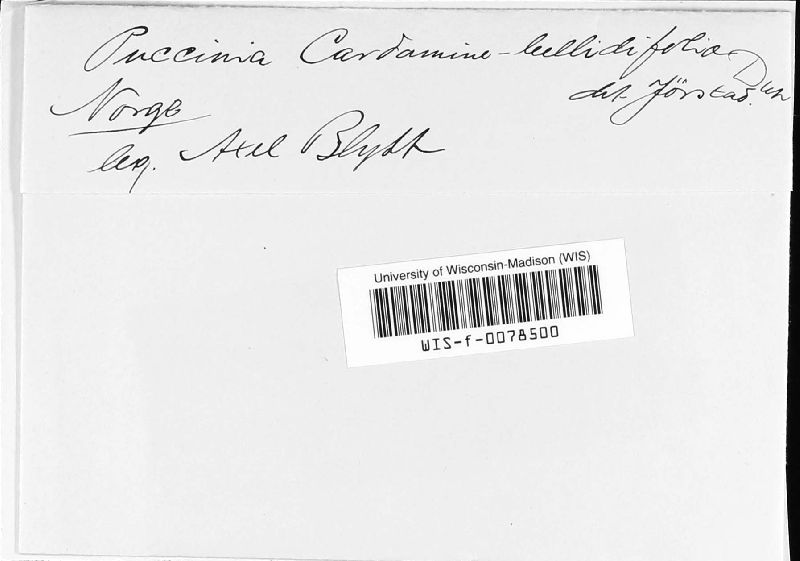 Puccinia Cardamine-bellidifolia Diet.
det. Jörstad.
Norge
leg. Axel Blytt
University of Wisconsin-Madison (WIS)
WIS-f-0078500